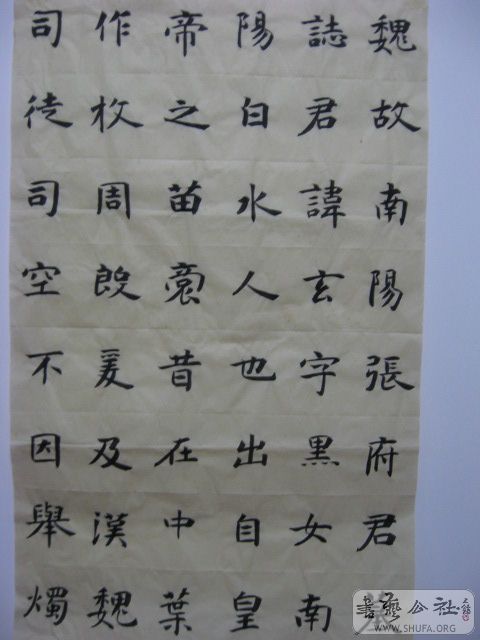 魏故南陽張府君
誌君諱玄字黑女南
陽白水人也出自皇
帝之苗裔昔在中葉
作牧周殷爰及漢魏
司徒司空不因舉燭
書藝公社
WWW.SHUFA.ORG